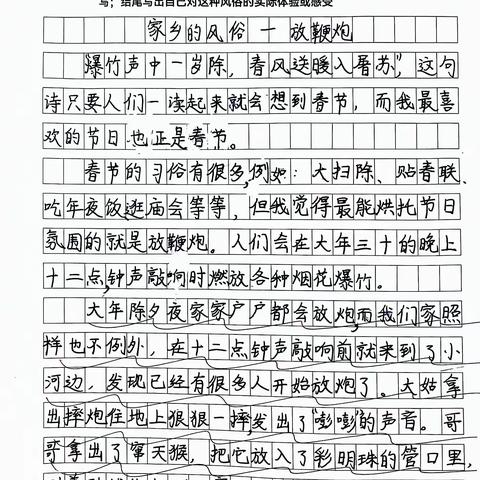 写；结尾写出自己对这种风俗的实际体验或感受
家乡的风俗一放鞭炮
“爆竹声中一岁除，春风送暖入屠苏”，这句
诗只要人们一读起来就会想到春节，而我最喜
欢的节日也正是春节。
春节的习俗有很多，例如：大扫除、贴春联、
吃年夜饭逛庙会等等，但我觉得最能烘托节日
氛围的就是放鞭炮。人们会在大年三十的晚上
十二点，钟声敲响时燃放各种烟花爆竹。
大年除夕夜家家户户都会放炮，而我们家照
样也不例外，在十二点钟声敲响前就来到了小
河边，发现已经有很多人开始放炮了。大姑拿
出摔炮住地上狠狠一摔，发出了“嘭嘭”的声音。哥
哥拿出了窜天猴，把它放入了彩明珠的管口里，